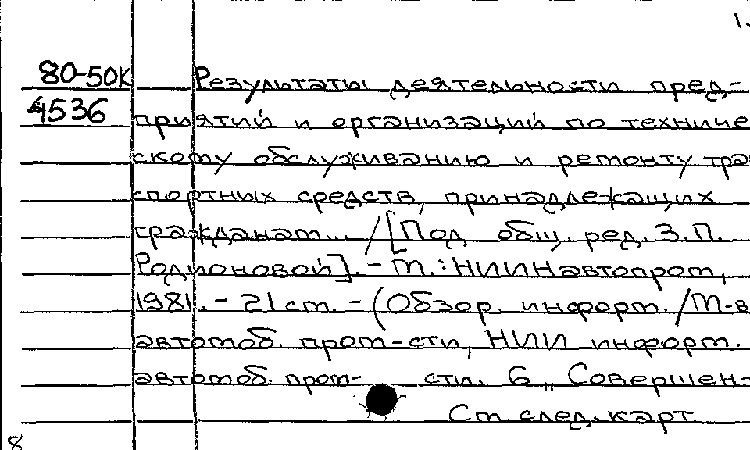 1.
80-50К Результаты деятельности пред-
4536 приятий и организаций по техниче
скому обслуживанию и ремонту тра
спортных средств, принадлежащих
гражданам.. /[Под общ. ред. З.П.
Родионовой]. - М.: НИИНавтопром,
1981. - 21 см. - (Обзор. информ. /М-в
автомоб. пром-сти, НИИ информ.
автомоб. пром- сти. 6,, Совершен-
См след. карт
8